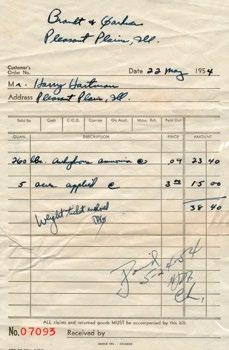 Brandt & Garber
Pleasant Plain, Ill.
Customer's
Order No.
Date 22 May 1954
M r. Harry Hartman
Address Pleasant Plain, Ill.
Sold by Cash C.O.D. Charge On Acct. Mdse. Retd. Paid Out
QUAN. DESCRIPTION PRICE AMOUNT
260 lbs. anhydrous ammonia @ 09 23 40
5 acre applied @ 3 00 15 00
38 40
Weight ticket
Paid
ALL claims and returned goods MUST be accompanied by this bill.
No. 07093 Received by